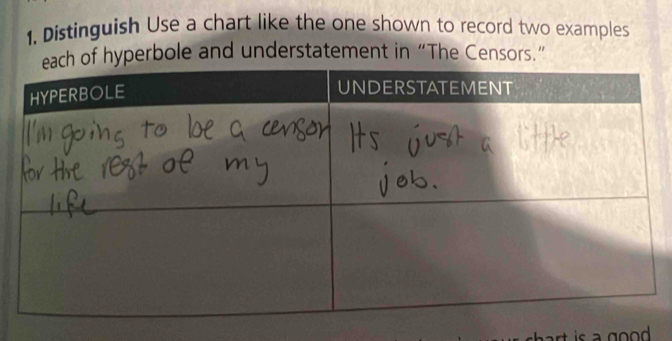 1. Distinguish Use a chart like the one shown to record two examples
each of hyperbole and understatement in "The Censors."
HYPERBOLE
UNDERSTATEMENT
I'm going to be a censor
for the rest of my
life
Its just a little
job.
chart is a good